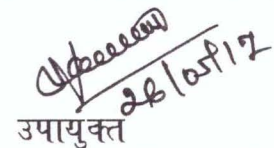 26/05/17
उपायुक्त